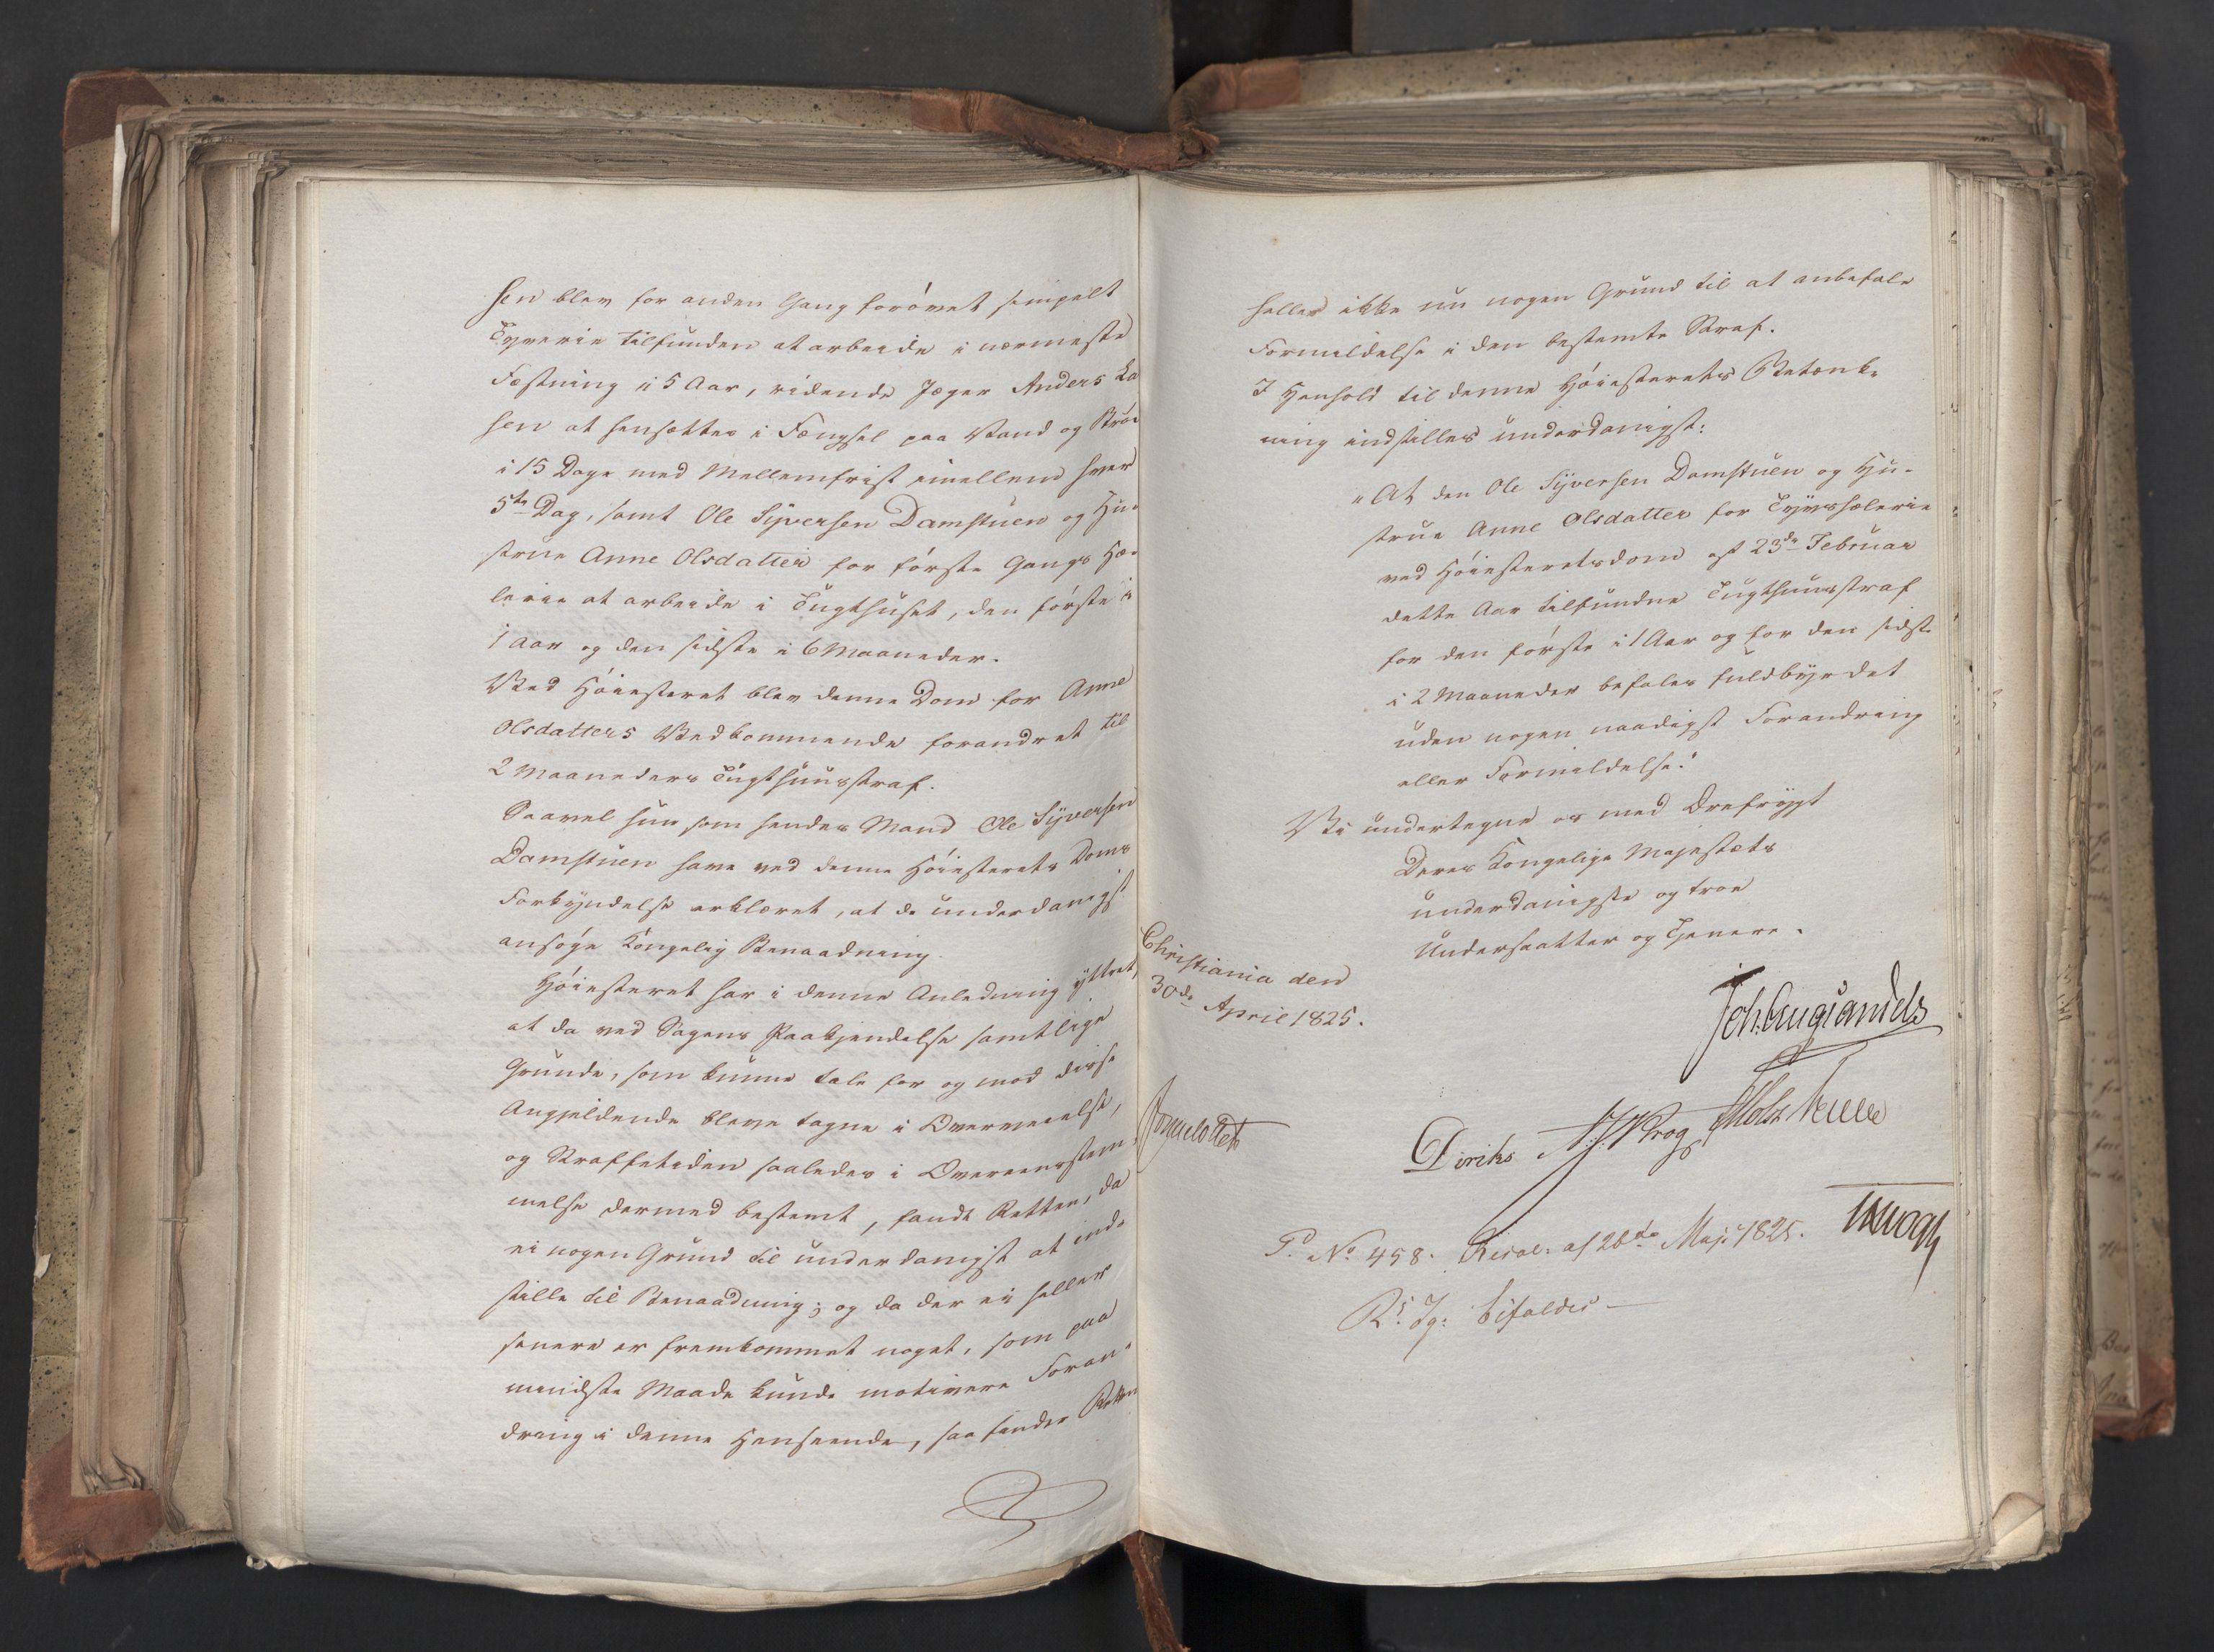 sen blev for anden Gang forövet simpelt
Tyverie tilfunden at arbeide i nærmeste
Fæstning i 5 Aar, ridende Jæger Anders La
sen at hensættes i Fængsel paa Vand og Brød
i 15 Dage med Mellemfrist imellem hver
5te Dag, samt Ole Syversen Damstuen og Hu-
strue Anne Olsdatter for første Gangs Hæ-
lerie at arbeide i Tugthuset, den første i
1 Aar og den sidste i 6 Maaneder.
Ved Höiesteret blev denne Dom for Anne
Olsdatters Vedkommende forandret til
2 Maaneders Tugthuusstraf.
Saavel hun som hendes Mand Ole Syversen
Damstuen have ved denne Höiesterets Doms
Forkyndelse erklæret, at de underdanigst
ansöge Kongelig Benaadning.
Höiesteret har i denne Anledning yttret,
at da ved Sagens Paakjendelse samtlige
Grunde, som kunne tale for og mod disse
Angjeldende bleve tagne i Overveielse,
og Straffetiden saaledes i Overeensstem-
melse dermed bestemt, fandt Retten, da
ei nogen Grund til underdanigst at ind-
stille til Benaadning; og da der ei heller
senere er fremkommet noget, som paa
mindste Maade kunde motivere Foran-
dring i denne Henseende, saa finder Retten
heller ikke nu nogen Grund til at anbefale
Formildelse i den bestemte Straf.
I Henhold til denne Höiesterets Betænk-
ning indstilles underdanigst:
"At den Ole Syversen Damstuen og Hu-
strue Anne Olsdatter for Tyvshælerie
ved Höiesteretsdom af 23de Februar
dette Aar tilfundne Tugthuusstraf
for den første i 1 Aar og for den sidste
i 2 Maaneder befales fuldbyrdet
uden nogen naadigst Forandring
eller Formildelse."
Vi undertegne os med Ærefrygt
Deres Kongelige Majestæts
underdanigste og troe
Undersaatter og Tjenere.
Christiania den
30de April 1825.
Joh. Collett
Diriks Krog Motzfeldt
P. No 458. Resol: af 26de Maji 1825.
bifaldes